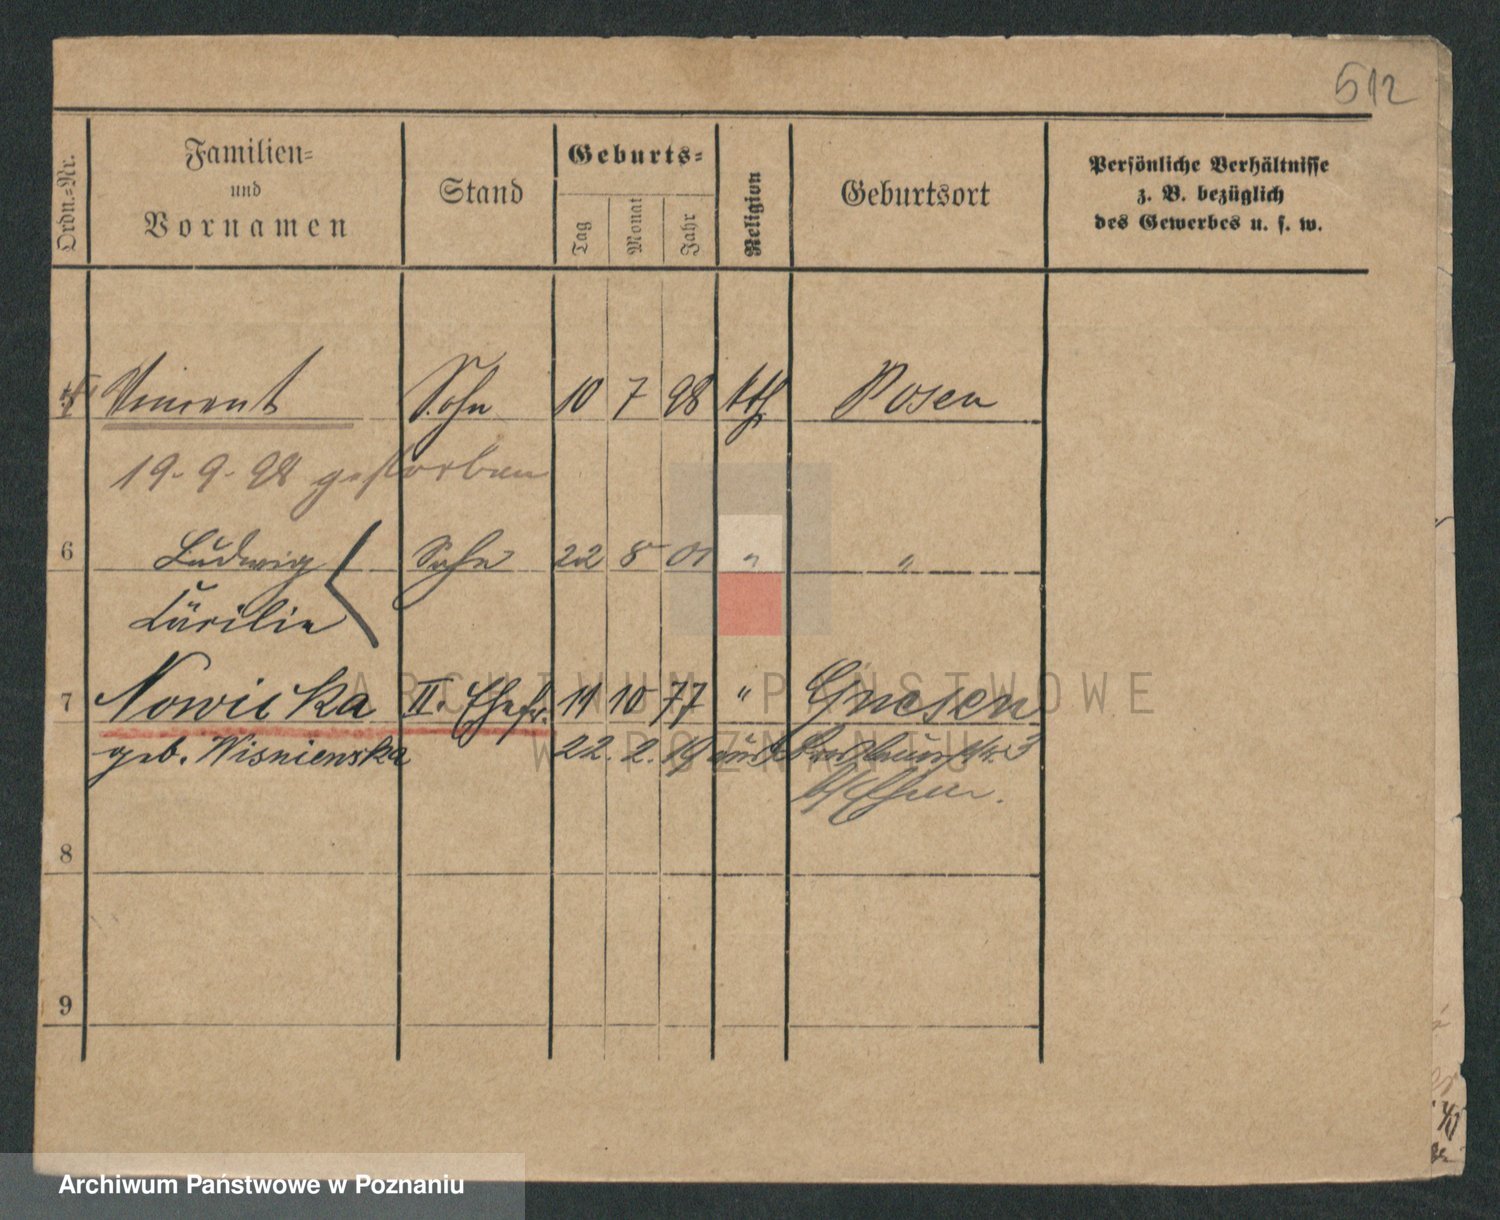 512
Ordn.-Nr.
Familien-
und
Vornamen
Stand
Geburts-
Tag
Monat
Jahr
Religion
Geburtsort
Persönliche Verhältnisse
z. B. bezüglich
des Gewerbes u. s. w.
Vincent Sohn 10 7 98 kth Posen
19. 9. 98 gestorben
6 Ludwig Sohn 22 8 01 " "
Cäcilie
7 Nowicka II. Ehefr. 11 10 77 " Gnesen
geb. Wisniewska 22. 2. 19
8
9
ARCHIWUM PAŃSTWOWE
W POZNANIU
Archiwum Państwowe w Poznaniu